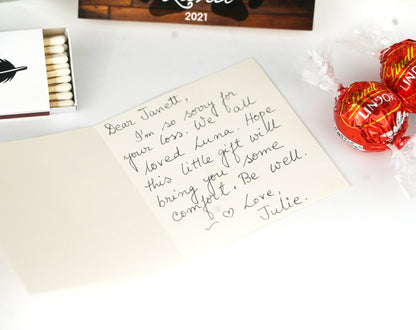 2021
Dear Janett,
I'm so sorry for
your loss. We all
loved Luna. Hope
this little gift will
bring you some
comfort. Be well.
Love,
Julie.
Lindt
LINDOR